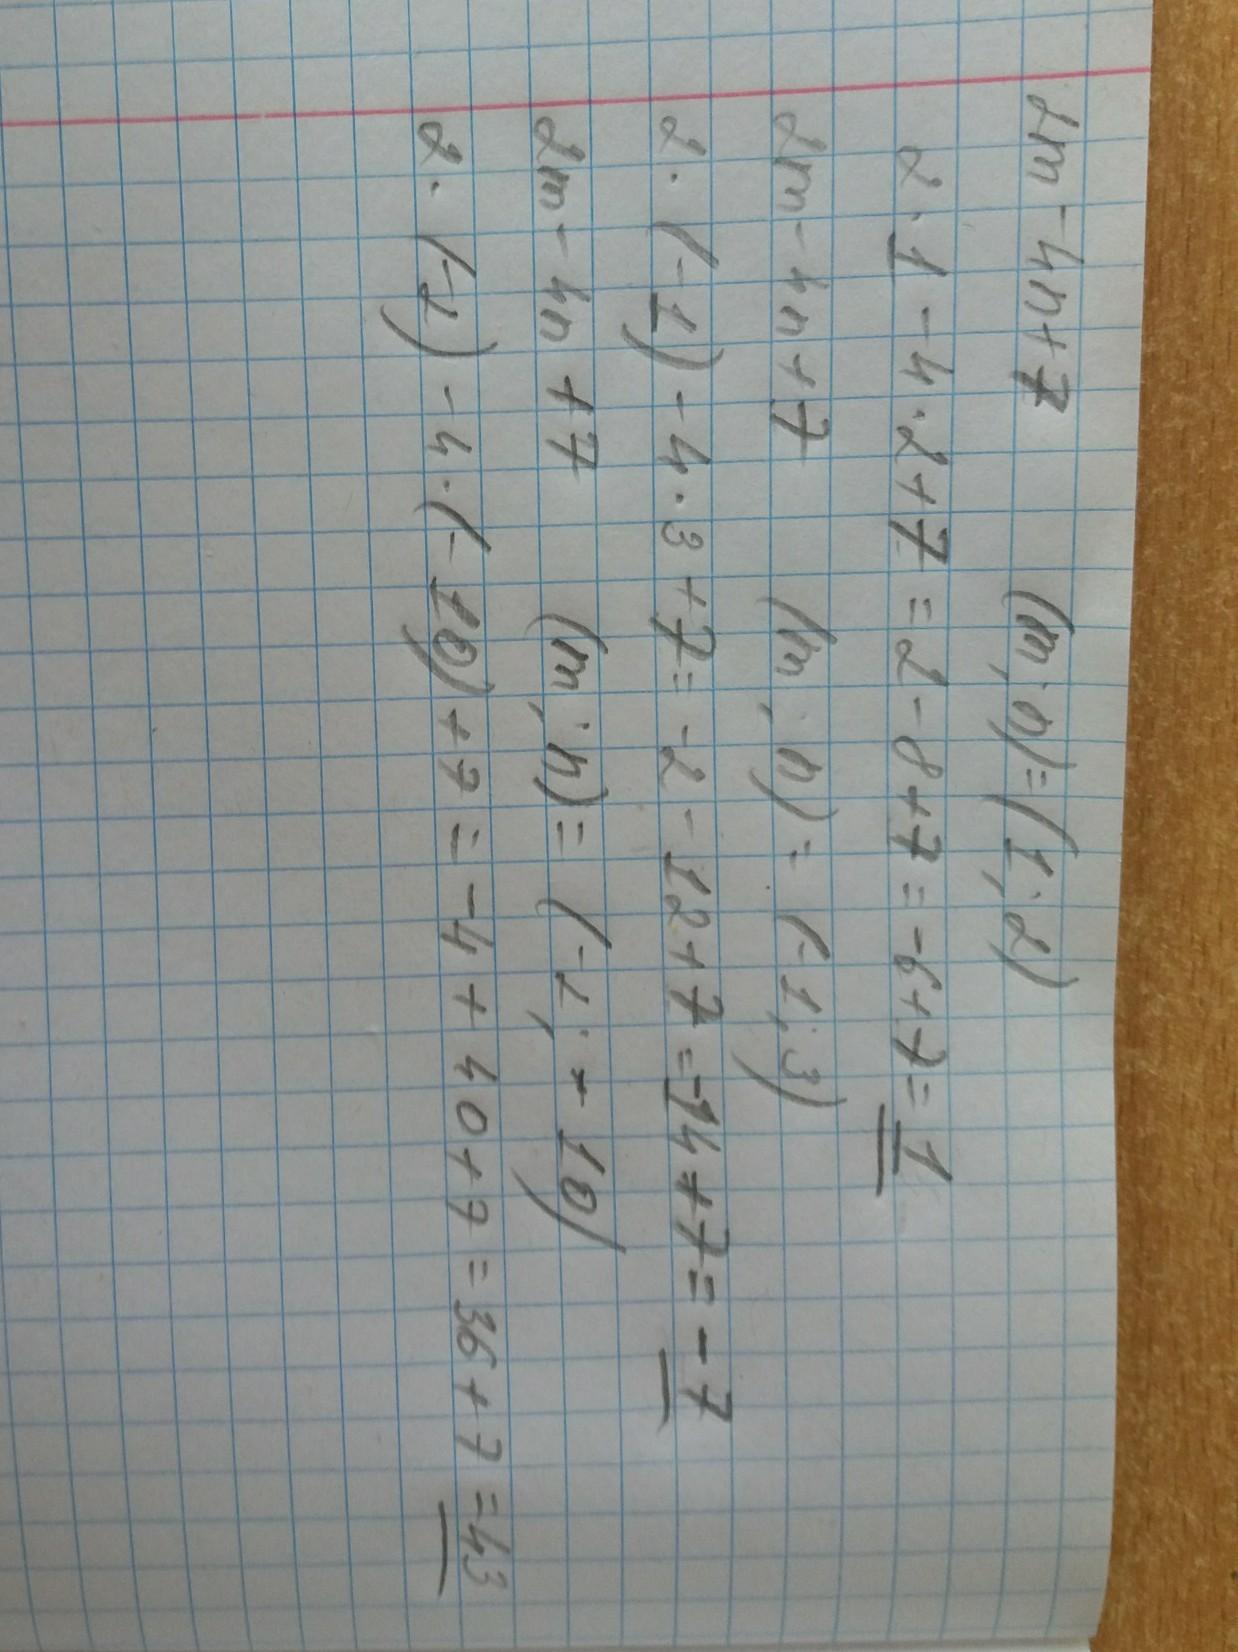 2m - 4n + 7 (m; n) = (1; 2)
2 · 1 - 4 · 2 + 7 = 2 - 8 + 7 = -6 + 7 = 1
2m - 4n + 7 (m; n) = (-1; 3)
2 · (-1) - 4 · 3 + 7 = -2 - 12 + 7 = -14 + 7 = -7
2m - 4n + 7 (m; n) = (-2; -10)
2 · (-2) - 4 · (-10) + 7 = -4 + 40 + 7 = 36 + 7 = 43